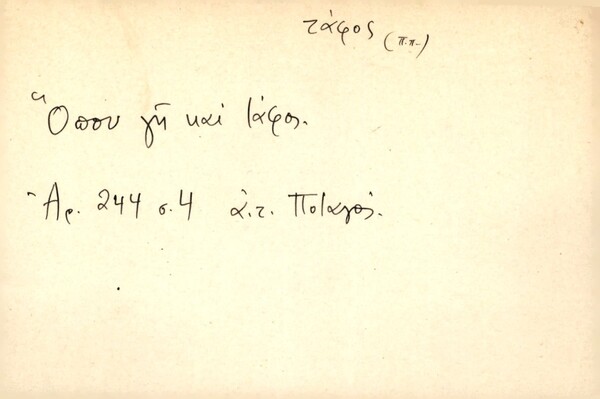 τάφος (π.π.)
Ὅπου γῆ καὶ τάφος.
Ἀρ. 244 σ. 4 ἀ.τ.